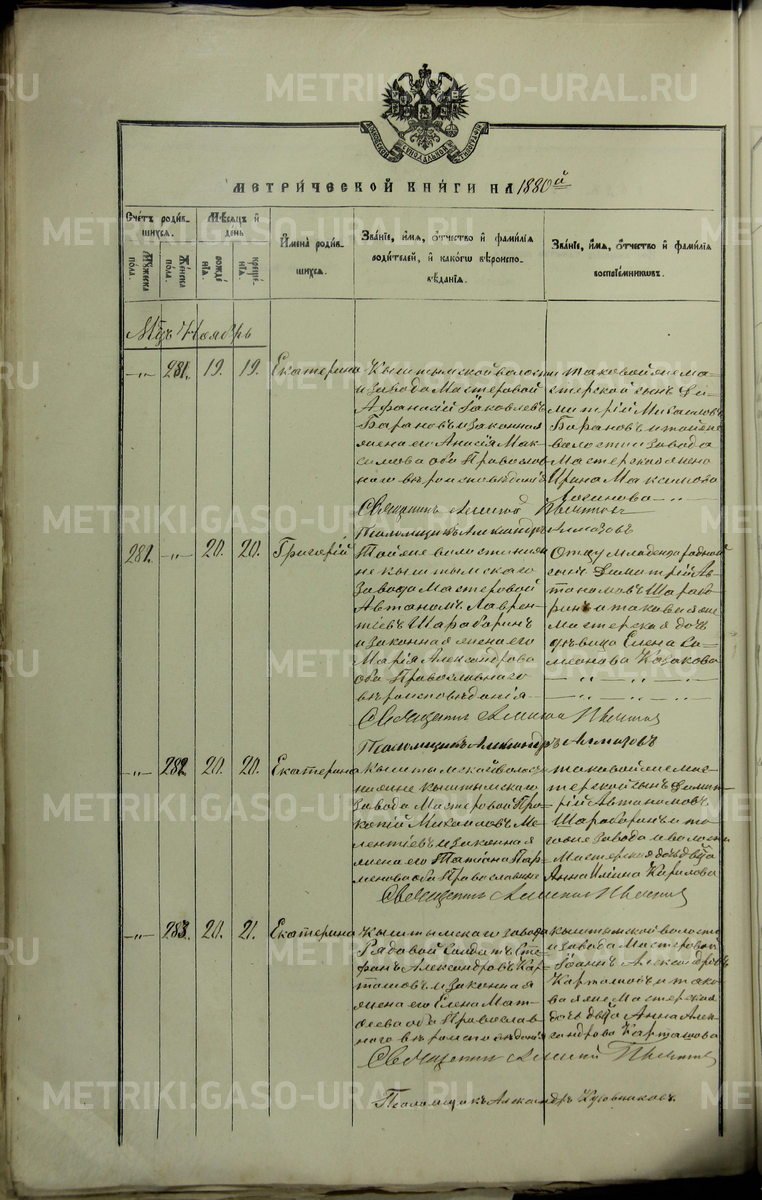 METRIKI.GASO-URAL.RU
МЕТРИ́ЧЕСКОЙ КНИ́ГИ НА 1880й
Счетъ роди́вшихся.
Мѣ́сяцъ и день
Имена̀ роди́вшихся.
Зва́нїе, и́мя, ѻ́тчество и фами́лїя роди́телей, и како́гѡ вѣроисповѣ́данїя.
Зва́нїе, и́мя, ѻ́тчество и фами́лїя воспрїе́мниковъ.
Мꙋ́жеска по́ла.
Же́нска по́ла.
рожде́нїя.
креще́нїя.
Мцъ Ноябрь
-„- 281. 19. 19. Екатерина
Кыштымской волости
и завода Мастеровой
Афанасій Яковлевъ
Барановъ и законная
жена его Анисія Мак-
симова оба Православ
наго вѣроисповѣданія
таковой же ма-
стерской сынъ Ди-
митрій Михаиловъ
Барановъ и той же
волости и завода
Мастерская жена
Ирина Максимова
Священникъ Алексій
Псаломщикъ Александръ Алмазовъ
281. -„- 20. 20. Григорій
Той же волости ниж
не Кыштымскаго
завода Мастеровой
Автаномъ Лаврен-
тіевъ Шарабаринъ
и законная жена его
Марія Александрова
оба Православнаго
вѣроисповѣданія
Отцу младенца родной
сынъ Димитрій Ав-
таномовъ Шараба-
ринъ и таковая же
Мастерская дочь
дѣвица Елена Си-
меонова Козакова
Священникъ Алексій
Псаломщикъ Александръ Алмазовъ
-„- 282. 20. 20. Екатерина
Кыштымской волос-
ти ниже Кыштымскаго
завода Мастеровой Про-
копій Михаиловъ Ме-
лентіевъ и законная
жена его Татіана Пар-
менова оба Православные
таковой же мас-
терской сынъ Димит-
рій Автаномовъ
Шарабаринъ и то-
го же завода и волости
Мастерская дочь дѣвица
Анна Ильина Кирилова
Священникъ Алексій
-„- 283. 20. 21. Екатерина
Кыштымскаго завода
Рядовой Солдатъ Сте-
фанъ Александровъ Кар-
ташовъ и законная
жена его Елена Мат-
веева оба Православ-
наго вѣроисповѣданія
Кыштымской волости
и завода Мастеровой
Іоаннъ Александровъ
Карташовъ и тако-
вая же Мастерская
дочь дѣвица Анна Алек-
сандрова Карташова
Священникъ Алексій
Псаломщикъ Александръ